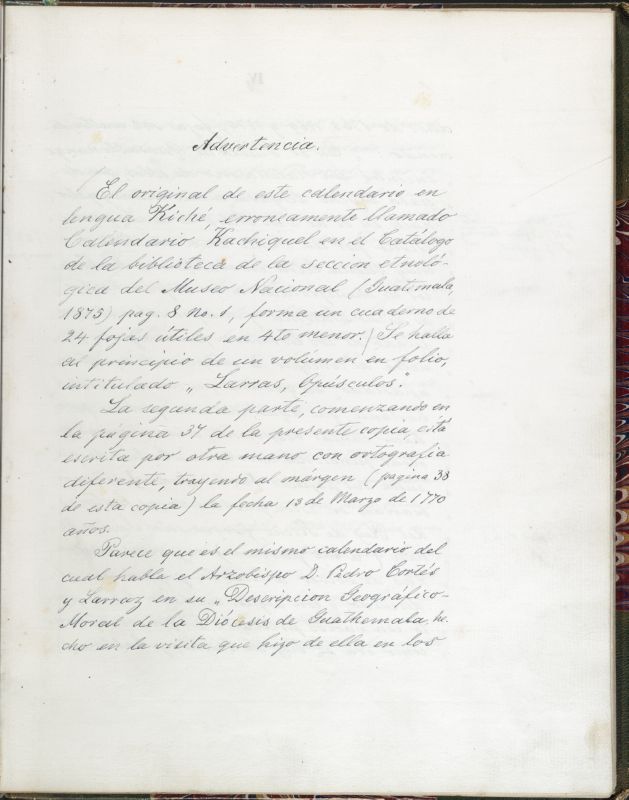 Advertencia.
El original de este calendario en
lengua Kiché, erroneamente llamado
Calendario Kachiquel en el Catálogo
de la biblioteca de la seccion etnoló-
gica del Museo Nacional (Guatemala,
1875) pag. 8 No. 1, forma un cuaderno de
24 fojas útiles en 4to menor. Se halla
al principio de un volúmen en folio,
intitulado „Larras, Opúsculos".
La segunda parte, comenzando en
la página 37 de la presente copia, está
escrita por otra mano con ortografía
diferente, trayendo al márgen (pagina 38
de esta copia) la fecha 13 de Marzo de 1770
años.
Parece que es el mismo calendario del
cual habla el Arzobispo D. Pedro Cortés
y Larraz en su „Descripcion Geográfico-
Moral de la Diócesis de Guathemala, he-
cho en la visita que hizo de ella en los